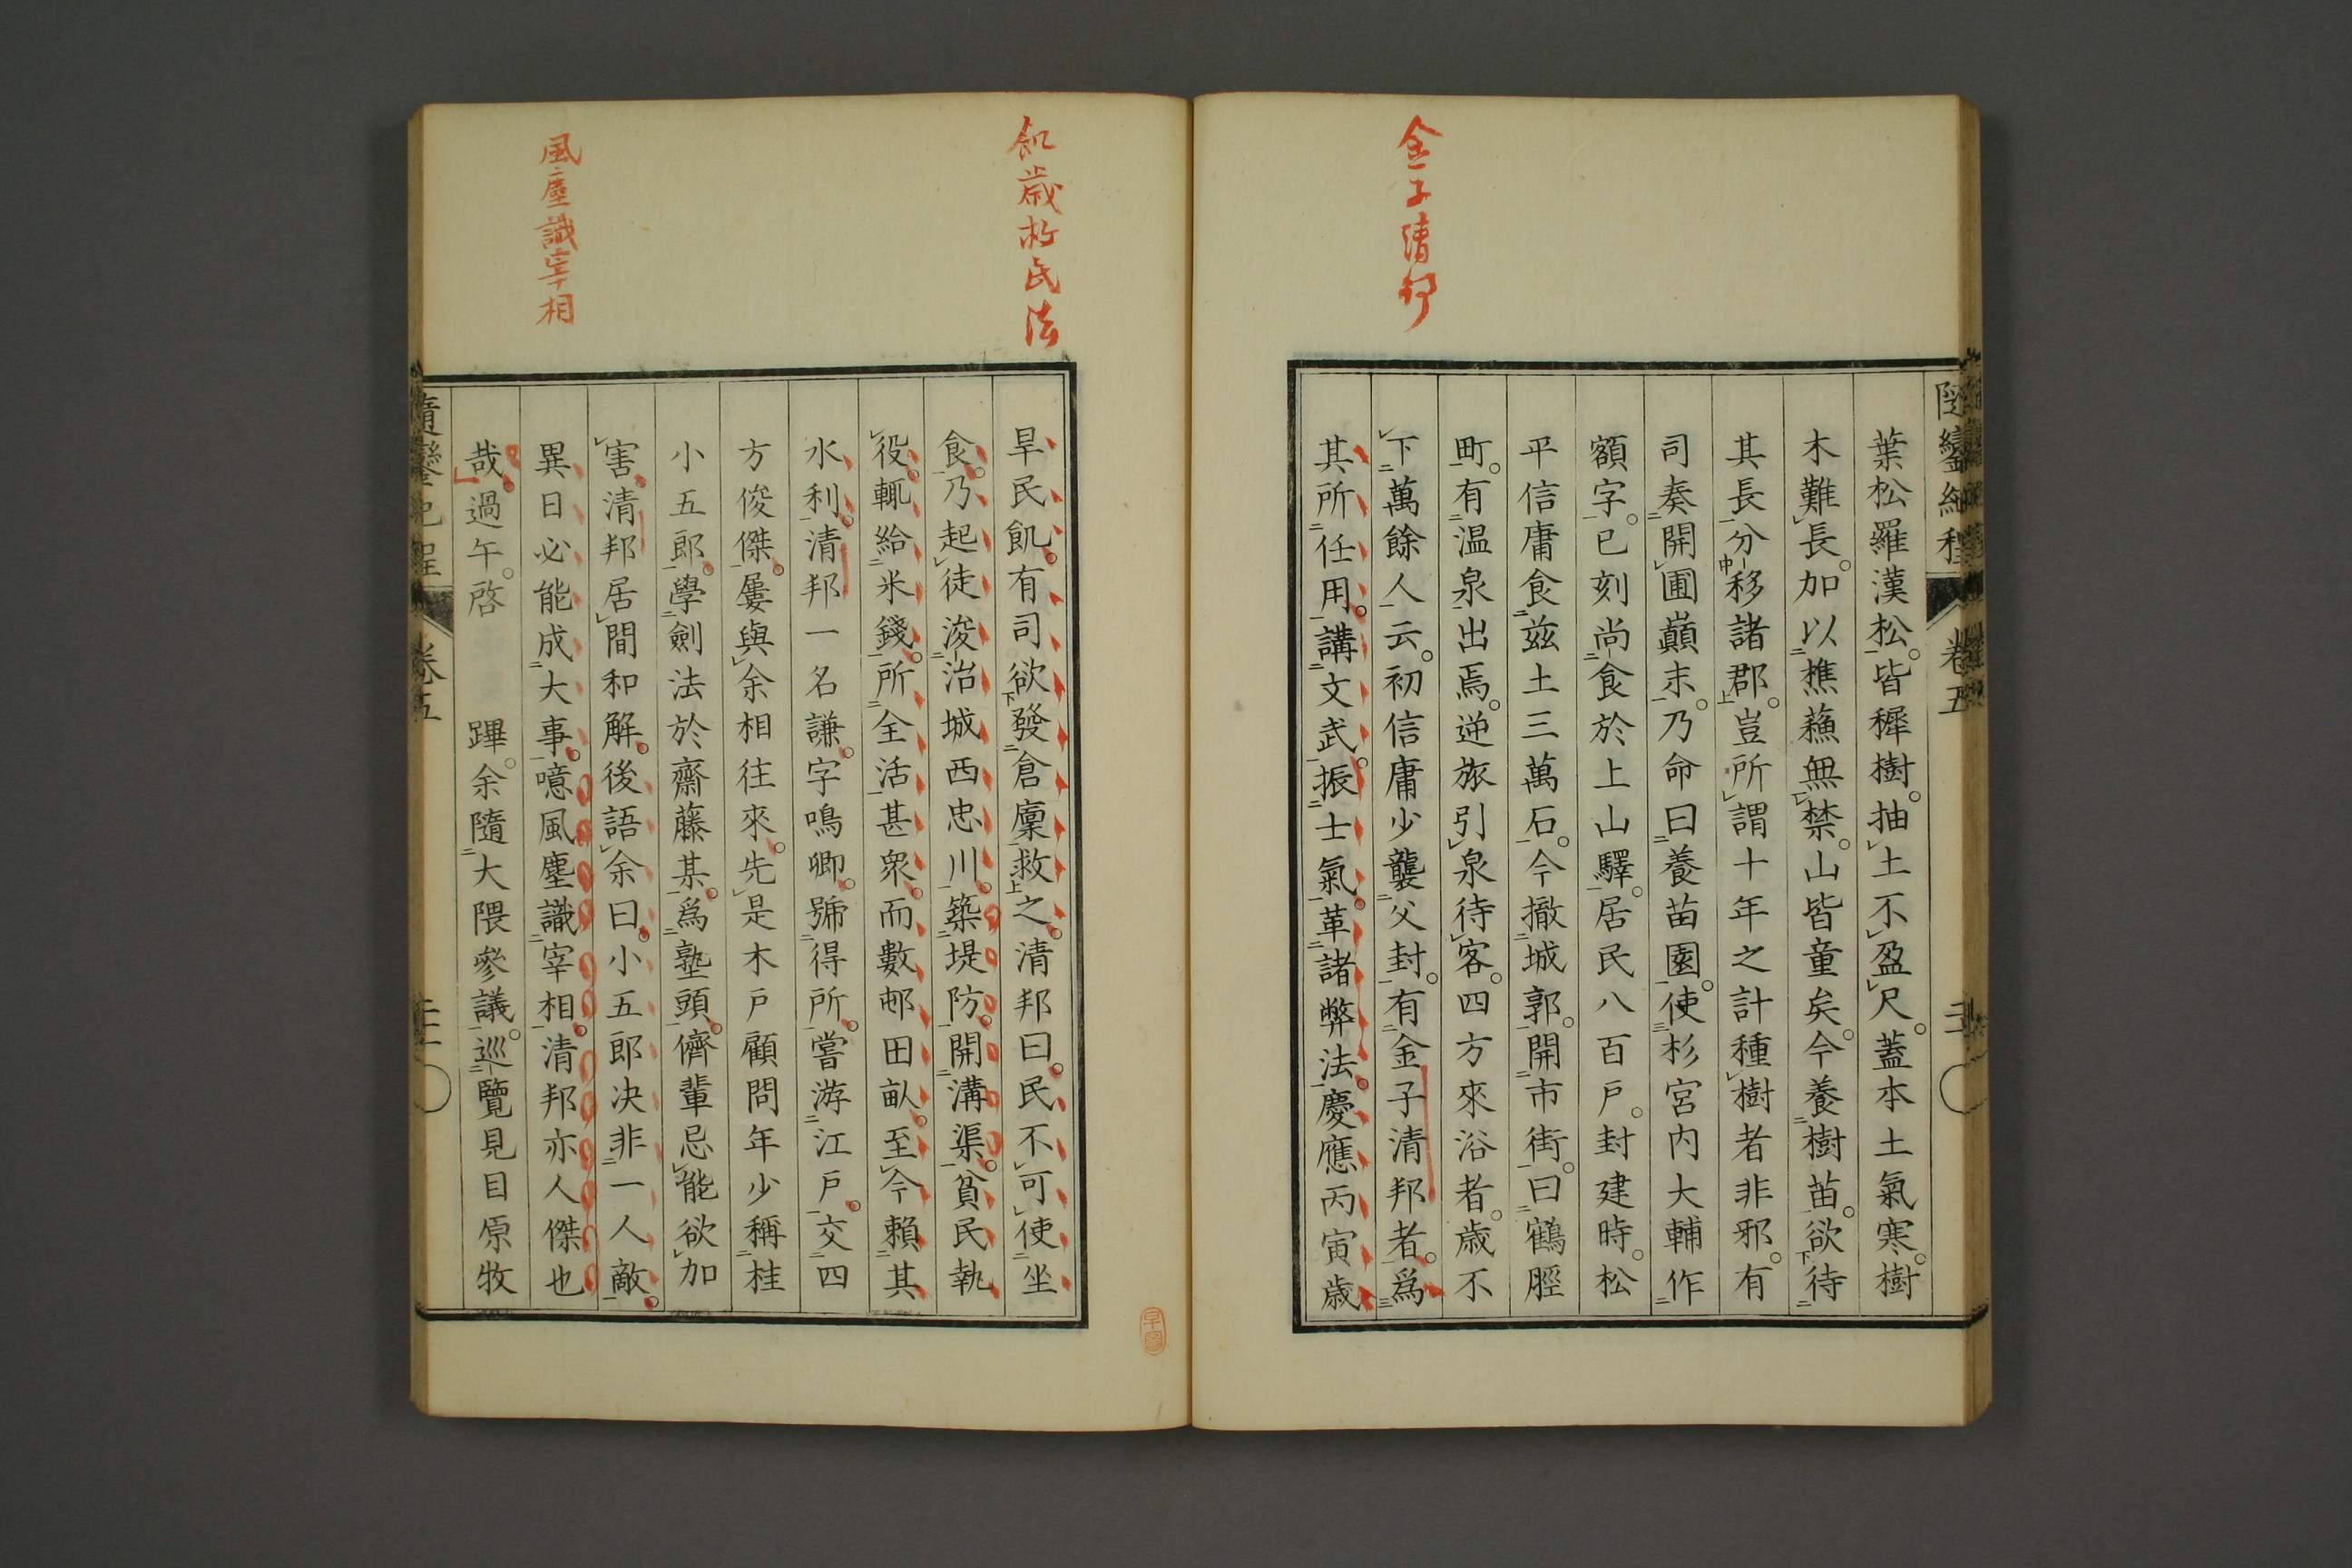 金子清邦
葉松羅漢松。皆穉樹。抽土不盈尺。蓋本土氣寒。樹
木難長。加以樵蘓無禁。山皆童矣。今養樹苗。欲待
其長分移諸郡。豈所謂十年之計種樹者非邪。有
司奏開圃巓末。乃命曰養苗園。使杉宮内大輔作
額字。已刻尚食於上山驛。居民八百戶。封建時。松
平信庸食玆土三萬石。今撤城郭。開市街。曰鶴脛
町。有温泉出焉。逆旅引泉待客。四方來浴者。歳不
下萬餘人云。初信庸少襲父封。有金子清邦者。爲
其所任用。講文武。振士氣。革諸弊法。慶應丙寅歳
飢歳救民法
風塵識宰相
旱民飢。有司欲發倉廩救之。清邦曰。民不可使坐
食。乃起徒浚治城西忠川。築堤防。開溝渠。貧民執
役。輒給米錢。所全活甚衆。而數邨田畝。至今賴其
水利。清邦一名謙。字鳴卿。號得所。嘗游江戶。交四
方俊傑。屢與余相往來。先是木戶顧問年少稱桂
小五郎。學劍法於齋藤某。爲塾頭。儕輩忌能欲加
害。清邦居間和解。後語余曰。小五郎決非一人敵。
異日必能成大事。噫風塵識宰相。清邦亦人傑也
哉。過午。啓蹕。余隨大隈參議。巡覽見目原牧
隨鑾紀程 卷五